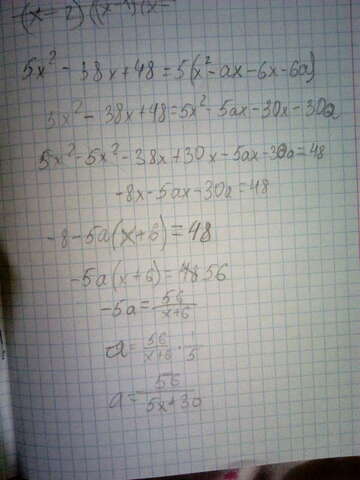 5x² - 38x + 48 = 5(x² - ax - 6x - 6a)
5x² - 38x + 48 = 5x² - 5ax - 30x - 30a
5x² - 5x² - 38x + 30x - 5ax - 30a = 48
-8x - 5ax - 30a = 48
-8 - 5a(x+6) = 48
-5a(x+6) = 56
-5a = 56/(x+6)
a = 56/(x+6) · 1/5
a = 56/(5x+30)